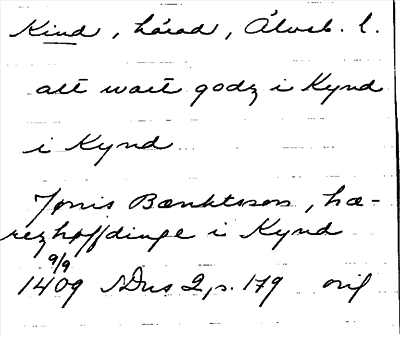 Kind, härad, Älvsb. l.
alt wart godz i Kynd
i Kynd
Jønis Bænktsson, hæ-
rezhøffdinge i Kynd
9/9
1409 SDns 2, s. 179 orig